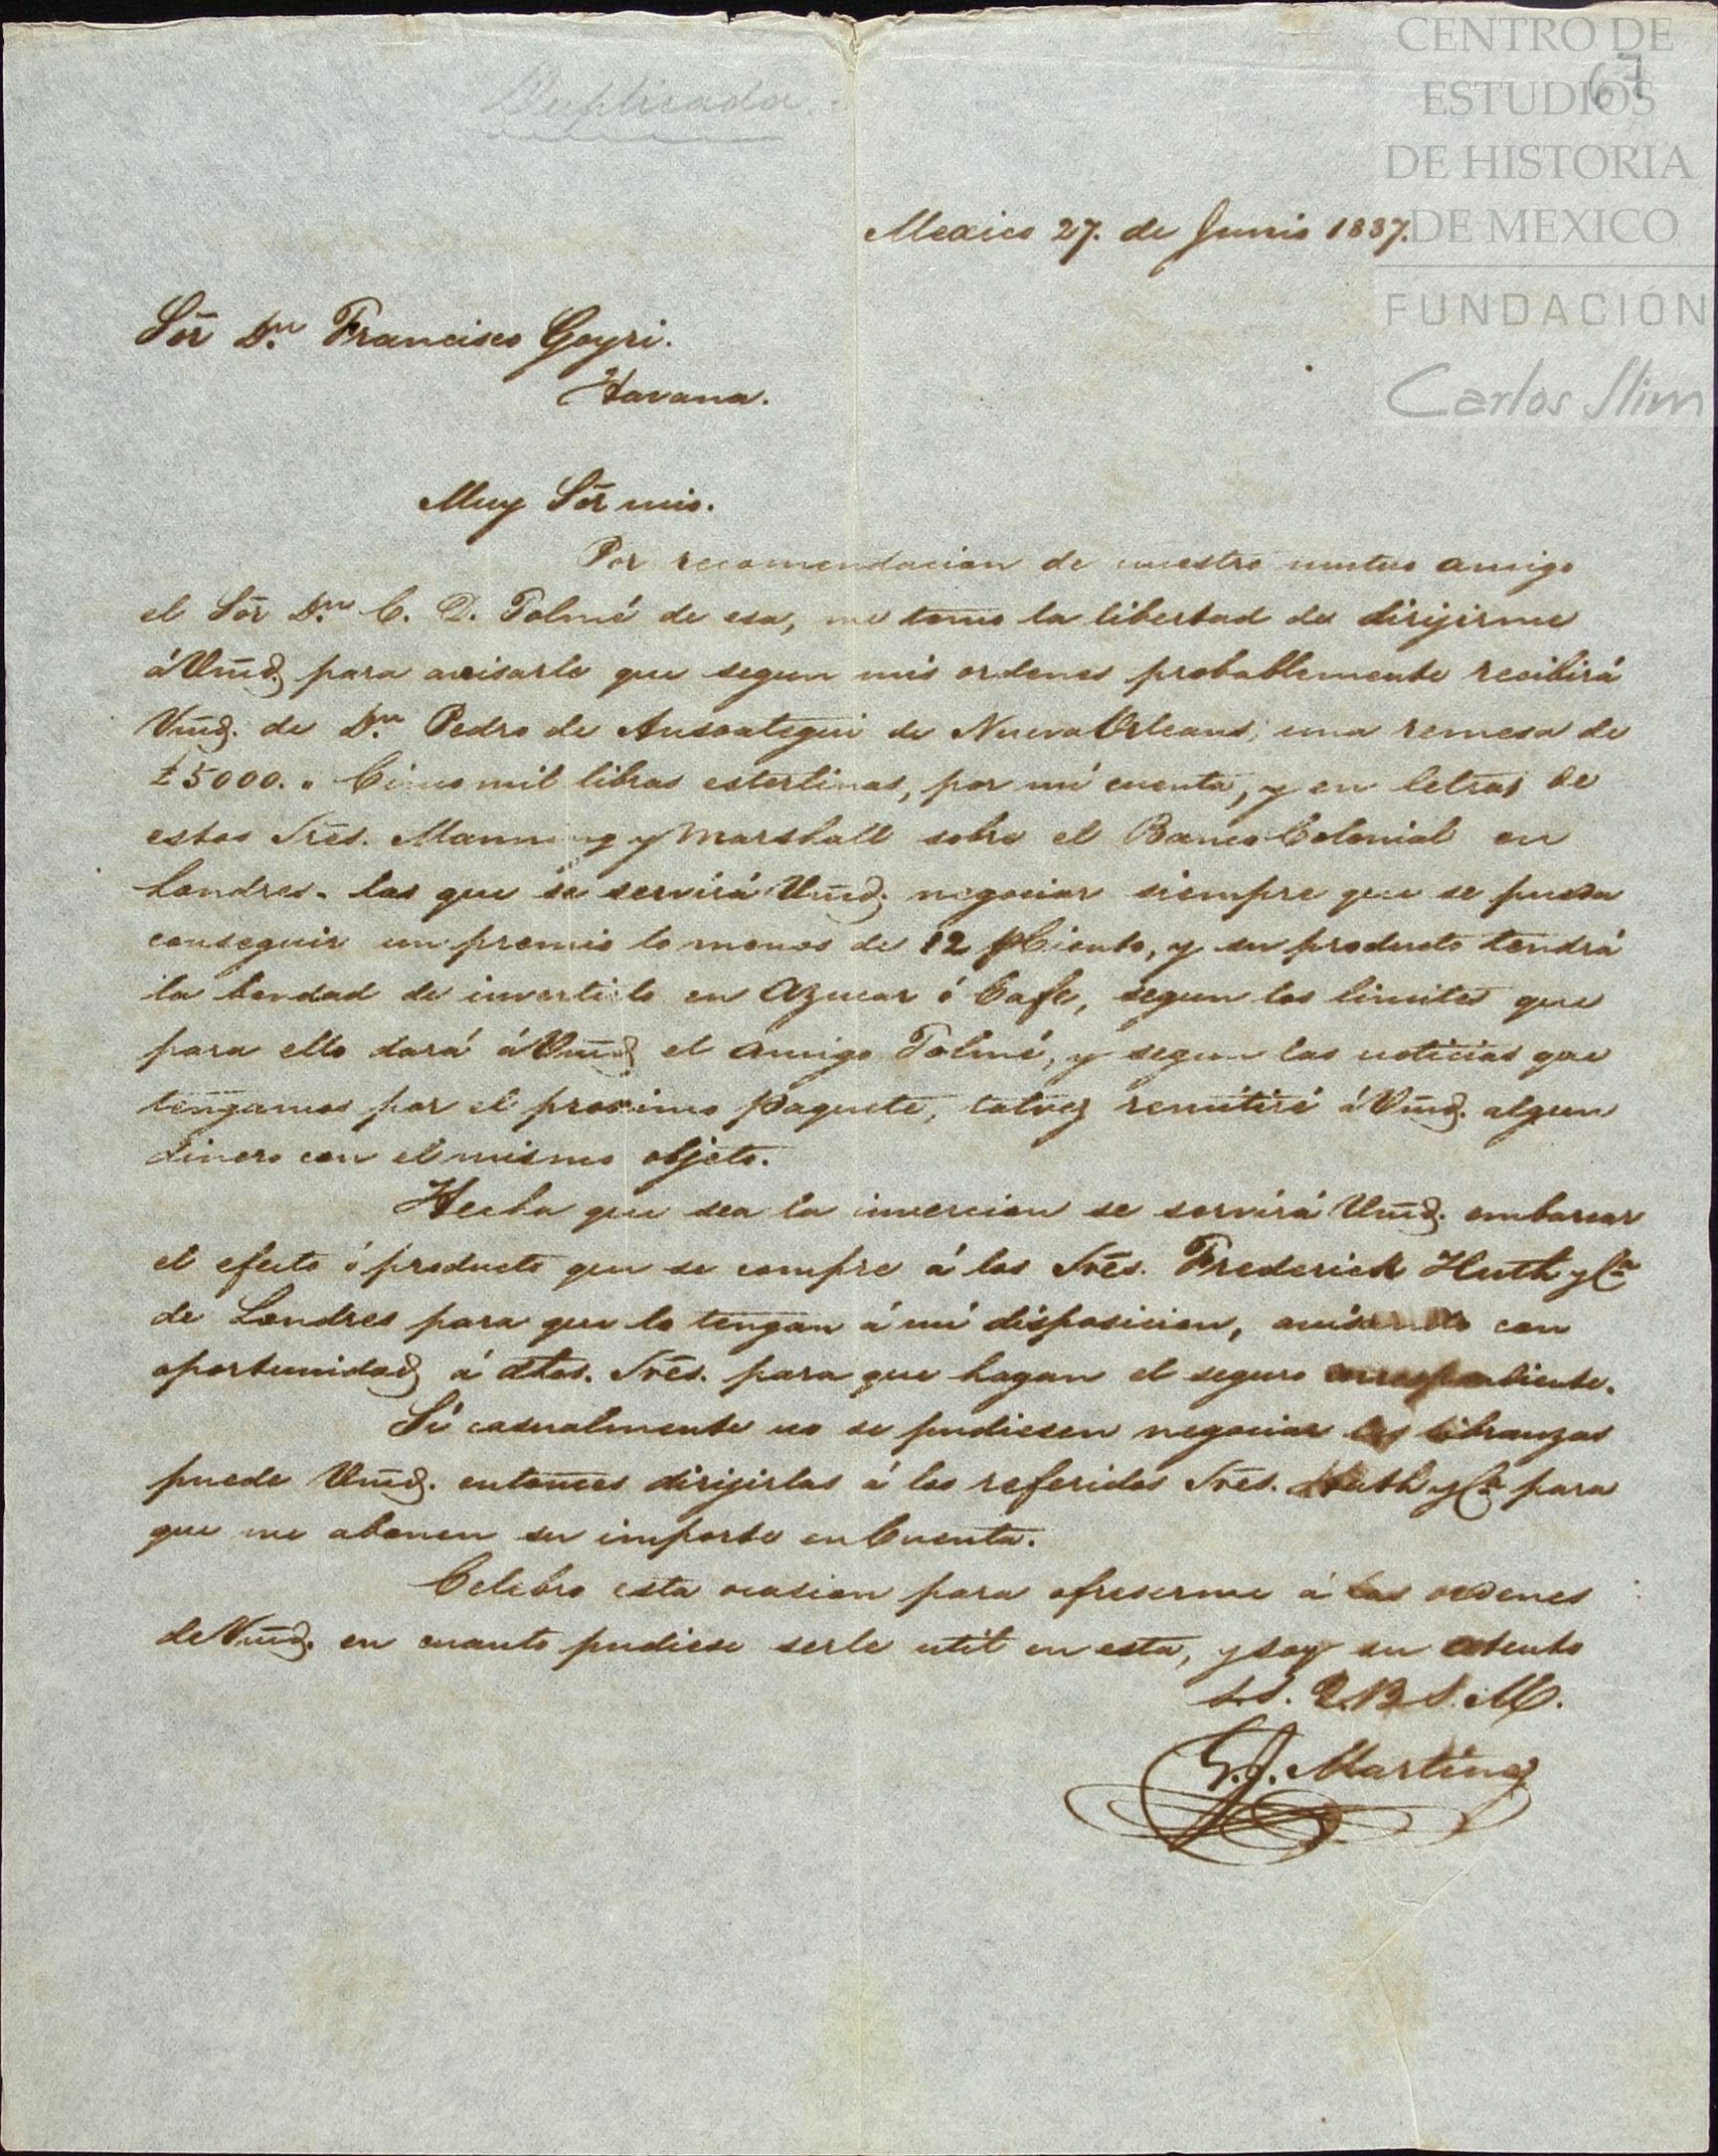 CENTRO DE
ESTUDIOS
DE HISTORIA
DE MEXICO
FUNDACIÓN
Carlos Slim
67
Duplicada.
Mexico 27. de Junio 1837.
Sōr Dn. Francisco Goyri.
Havana.
Muy Sōr mio.
Por recomendacion de nuestro mutuo amigo
el Sōr Dn. C. D. Tolmé de esa, me tomo la libertad de dirijirme
á Vmd. para avisarle que segun mis ordenes probablemente recibirá
Vmd. de Dn. Pedro de Ansoategui de Nueva Orleans, una remesa de
£5000. „ Cinco mil libras esterlinas, por mi cuenta, y en letras de
estos Sres. Manning y Marshall sobre el Banco Colonial en
Londres. las que se servirá Vmd. negociar siempre que se pueda
conseguir un premio lo menos de 12 pCiento, y su producto tendrá
la bondad de invertirlo en Azucar ó Cafe, segun los limites que
para ello dará á Vmd. el amigo Tolmé, y segun las noticias que
tengamos por el procsimo paquete, talvez remitiré á Vmd. algun
dinero con el mismo objeto.
Hecha que sea la invercion se servirá Vmd. embarcar
el efecto ó producto que se compre á los Sres. Frederick Huth y Ca.
de Londres para que lo tengan á mi disposicion, avisando con
oportunidad á dhos. Sres. para que hagan el seguro correspondiente.
Si casualmente no se pudiesen negociar las libranzas
puede Vmd. entonces dirijirlas á los referidos Sres. Huth y Ca. para
que me abonen su importe en Cuenta.
Celebro esta ocasion para ofreserme á las ordenes
de Vmd. en cuanto pudiese serle util en esta, y soy su atento
S.S. Q.B.S.M.
G.J. Martinez